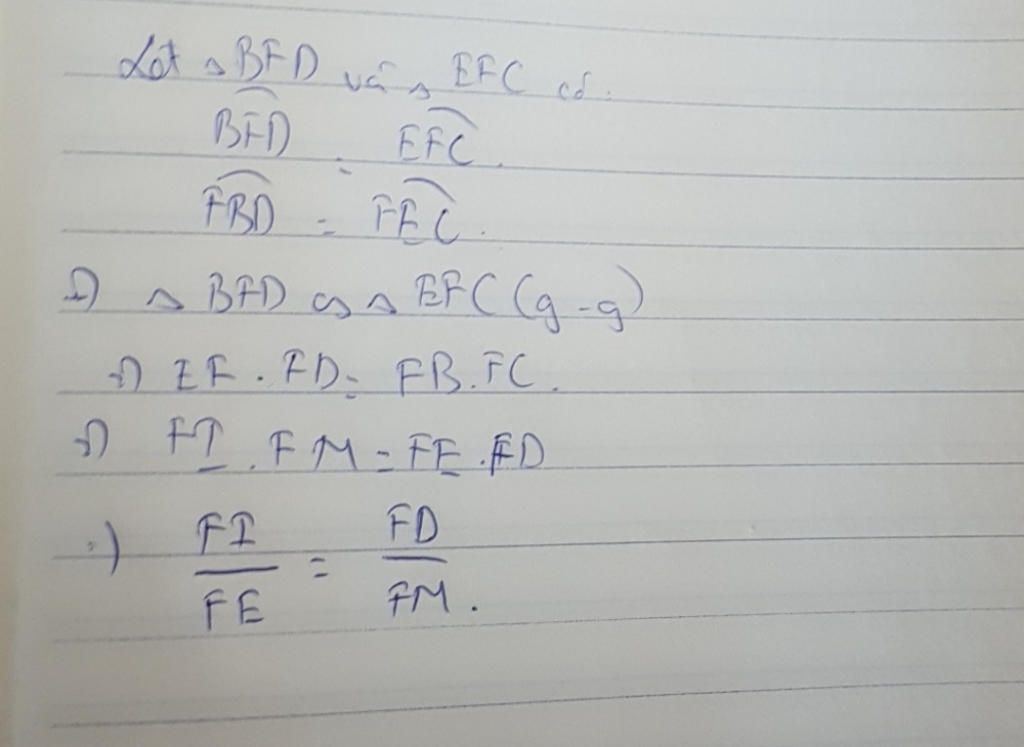 Xét △ BFD và △ EFC có:
BFD = EFC.
FBD = FEC.
=) △ BFD ∽ △ EFC (g-g)
=) EF . FD = FB . FC.
=) FI . FM = FE . FD
=) FI/FE = FD/FM.